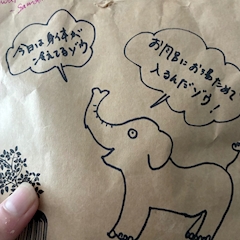 今日は身体が
冷えてるゾウ
お風呂にお湯ためて
入るんだゾウ!